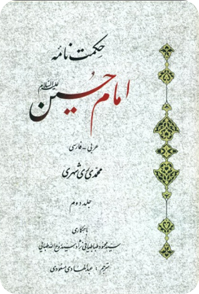 حکمت نامه
امام حسین علیه‌السلام
عربی - فارسی
محمدی ری شهری
جلد دوم
با همکاری
سید محمود طباطبایی نژاد و سید روح الله طبایی
مترجم : عبدالهادی مسعودی